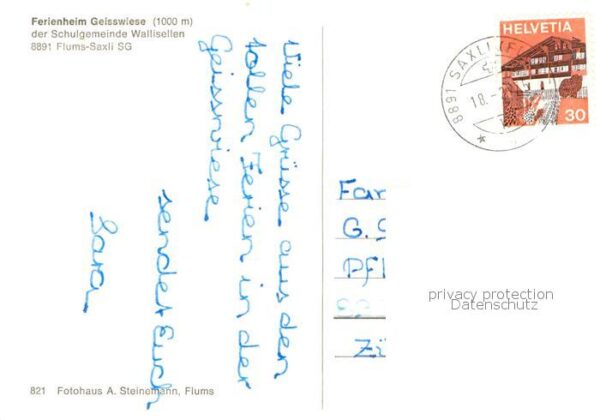 Ferienheim Geisswiese (1000 m)
der Schulgemeinde Wallisellen
8891 Flums-Saxli SG
Viele Grüsse aus den
tollen Ferien in der
Geisswiese
sendet Euch
Sara
HELVETIA
30
8891 SAXLI
18.
Fa
G.
Pf
Zü
privacy protection
Datenschutz
821 Fotohaus A. Steinemann, Flums